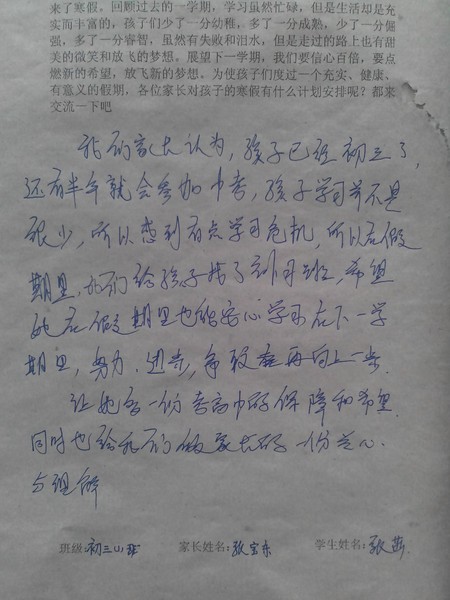 来了寒假。回顾过去的一学期,学习虽然忙碌,但是生活却是充
实而丰富的,孩子们少了一分幼稚,多了一分成熟,少了一分倔
强,多了一分睿智,虽然有失败和泪水,但是走过的路上也有甜
美的微笑和放飞的梦想。展望下一学期,我们要信心百倍,要点
燃新的希望,放飞新的梦想。为使孩子们度过一个充实、健康、
有意义的假期,各位家长对孩子的寒假有什么计划安排呢?都来
交流一下吧
我们家长认为,孩子已经初三了,
还有半年就会参加中考,孩子学习并不是
很少,所以感到有点学习危机,所以在假
期里,我们给孩子找了补习班,希望
她在假期里也能安心学习在下一学
期里,努力.进步,争取在再向上一步
让她有一份考高中的保障和希望.
同时也给我们做家长的一份关心.
与理解
班级:初三(1)班 家长姓名:张宝东 学生姓名:张